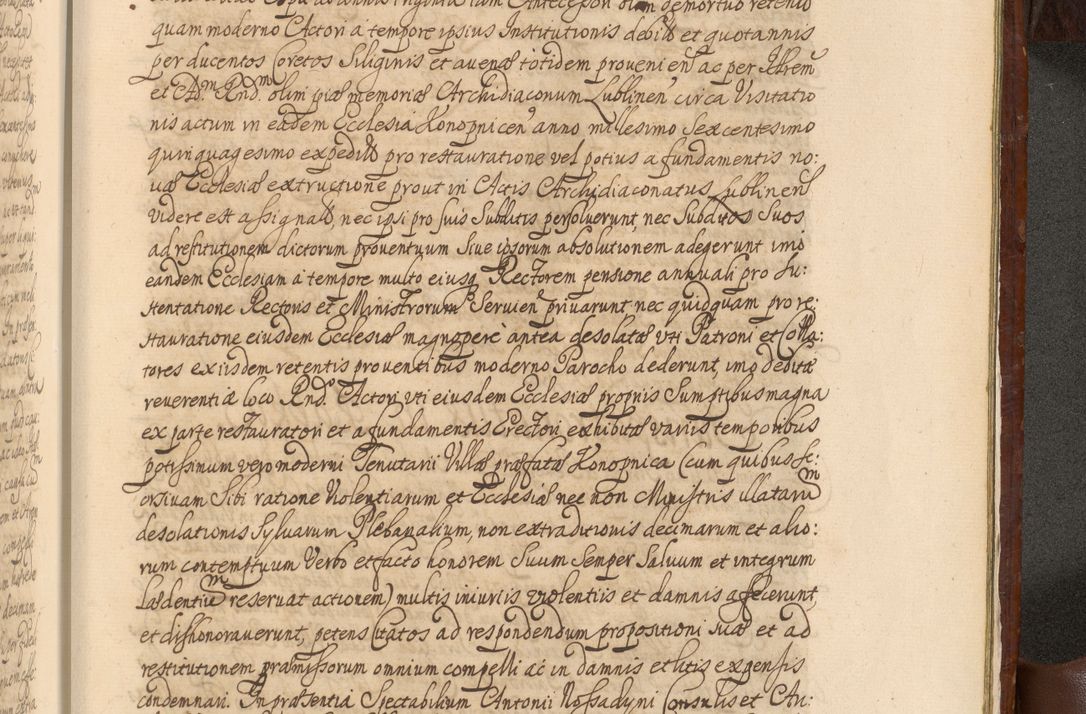 quam moderno Actori a tempore ipsius Institutionis debito et quotannis
per ducentos Coretos Siliginis et avenæ totidem provenien ac per Ilrem
et Adm Rndm olim piæ memoriæ Archidiaconum Lublinen circa Visitatio
nis actum in eadem Ecclesia Konopnicen anno millesimo Sexcentesimo
quinquagesimo expedito pro restauratione vel potius a fundamentis no:
væ Ecclesiæ extructione prout in Actis Archidiaconatus Lublinen
videre est assignato, nec ipsi pro suis Subditis persolverunt, nec Subditos Suos
ad restitutionem dictorum proventuum Sive ipsorum absolutionem adegerunt imo
eandem Ecclesiam a tempore multo eiusq Rectorem pensione annuali pro Su:
stentatione Rectoris et Ministrorum Servien privarunt, nec quidquam pro re:
stauratione eiusdem Ecclesiæ magnopere antea desolatæ uti Patroni et Colla:
tores ex iisdem retentis proventibus moderno Parocho dederunt, imo debitæ
reverentiæ loco Rndo Actori uti eiusdem Ecclesiæ propriis Sumptibus magna
ex parte restauratori et a fundamentis Erectori exhibitæ variis temporibus
potissimum vero moderni Tenutarii Villæ præfatæ Konopnica (cum quibus se:
orsivam Sibi ratione Violentiarum et Ecclesiæ nec non Ministris illatarum
desolationis Sylvarum Plebanalium, non extraditionis decimarum et alio:
rum contemptuum Verbo et facto honorem Suum Semper Salvum et integrum
lædentium reservat actionem) multis iniuriis violentiis et damnis affecerunt,
et dishonoraverunt, petens Citatos ad respondendum propositioni suæ et ad
restitutionem præmissorum omnium compelli ac in damnis et litis expensis
condemnari. In præsentia Spectabilium Antonii Nossadyni Consulis et Au: